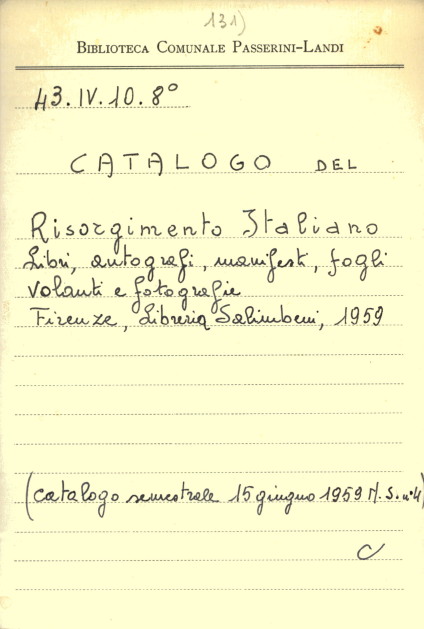 131)
BIBLIOTECA COMUNALE PASSERINI-LANDI
43.IV.10.8°
CATALOGO DEL
Risorgimento Italiano
Libri, autografi, manifesti, fogli
volanti e fotografie
Firenze, Libreria Salimbeni, 1959
(catalogo semestrale 15 giugno 1959 N.S. n°4)
C